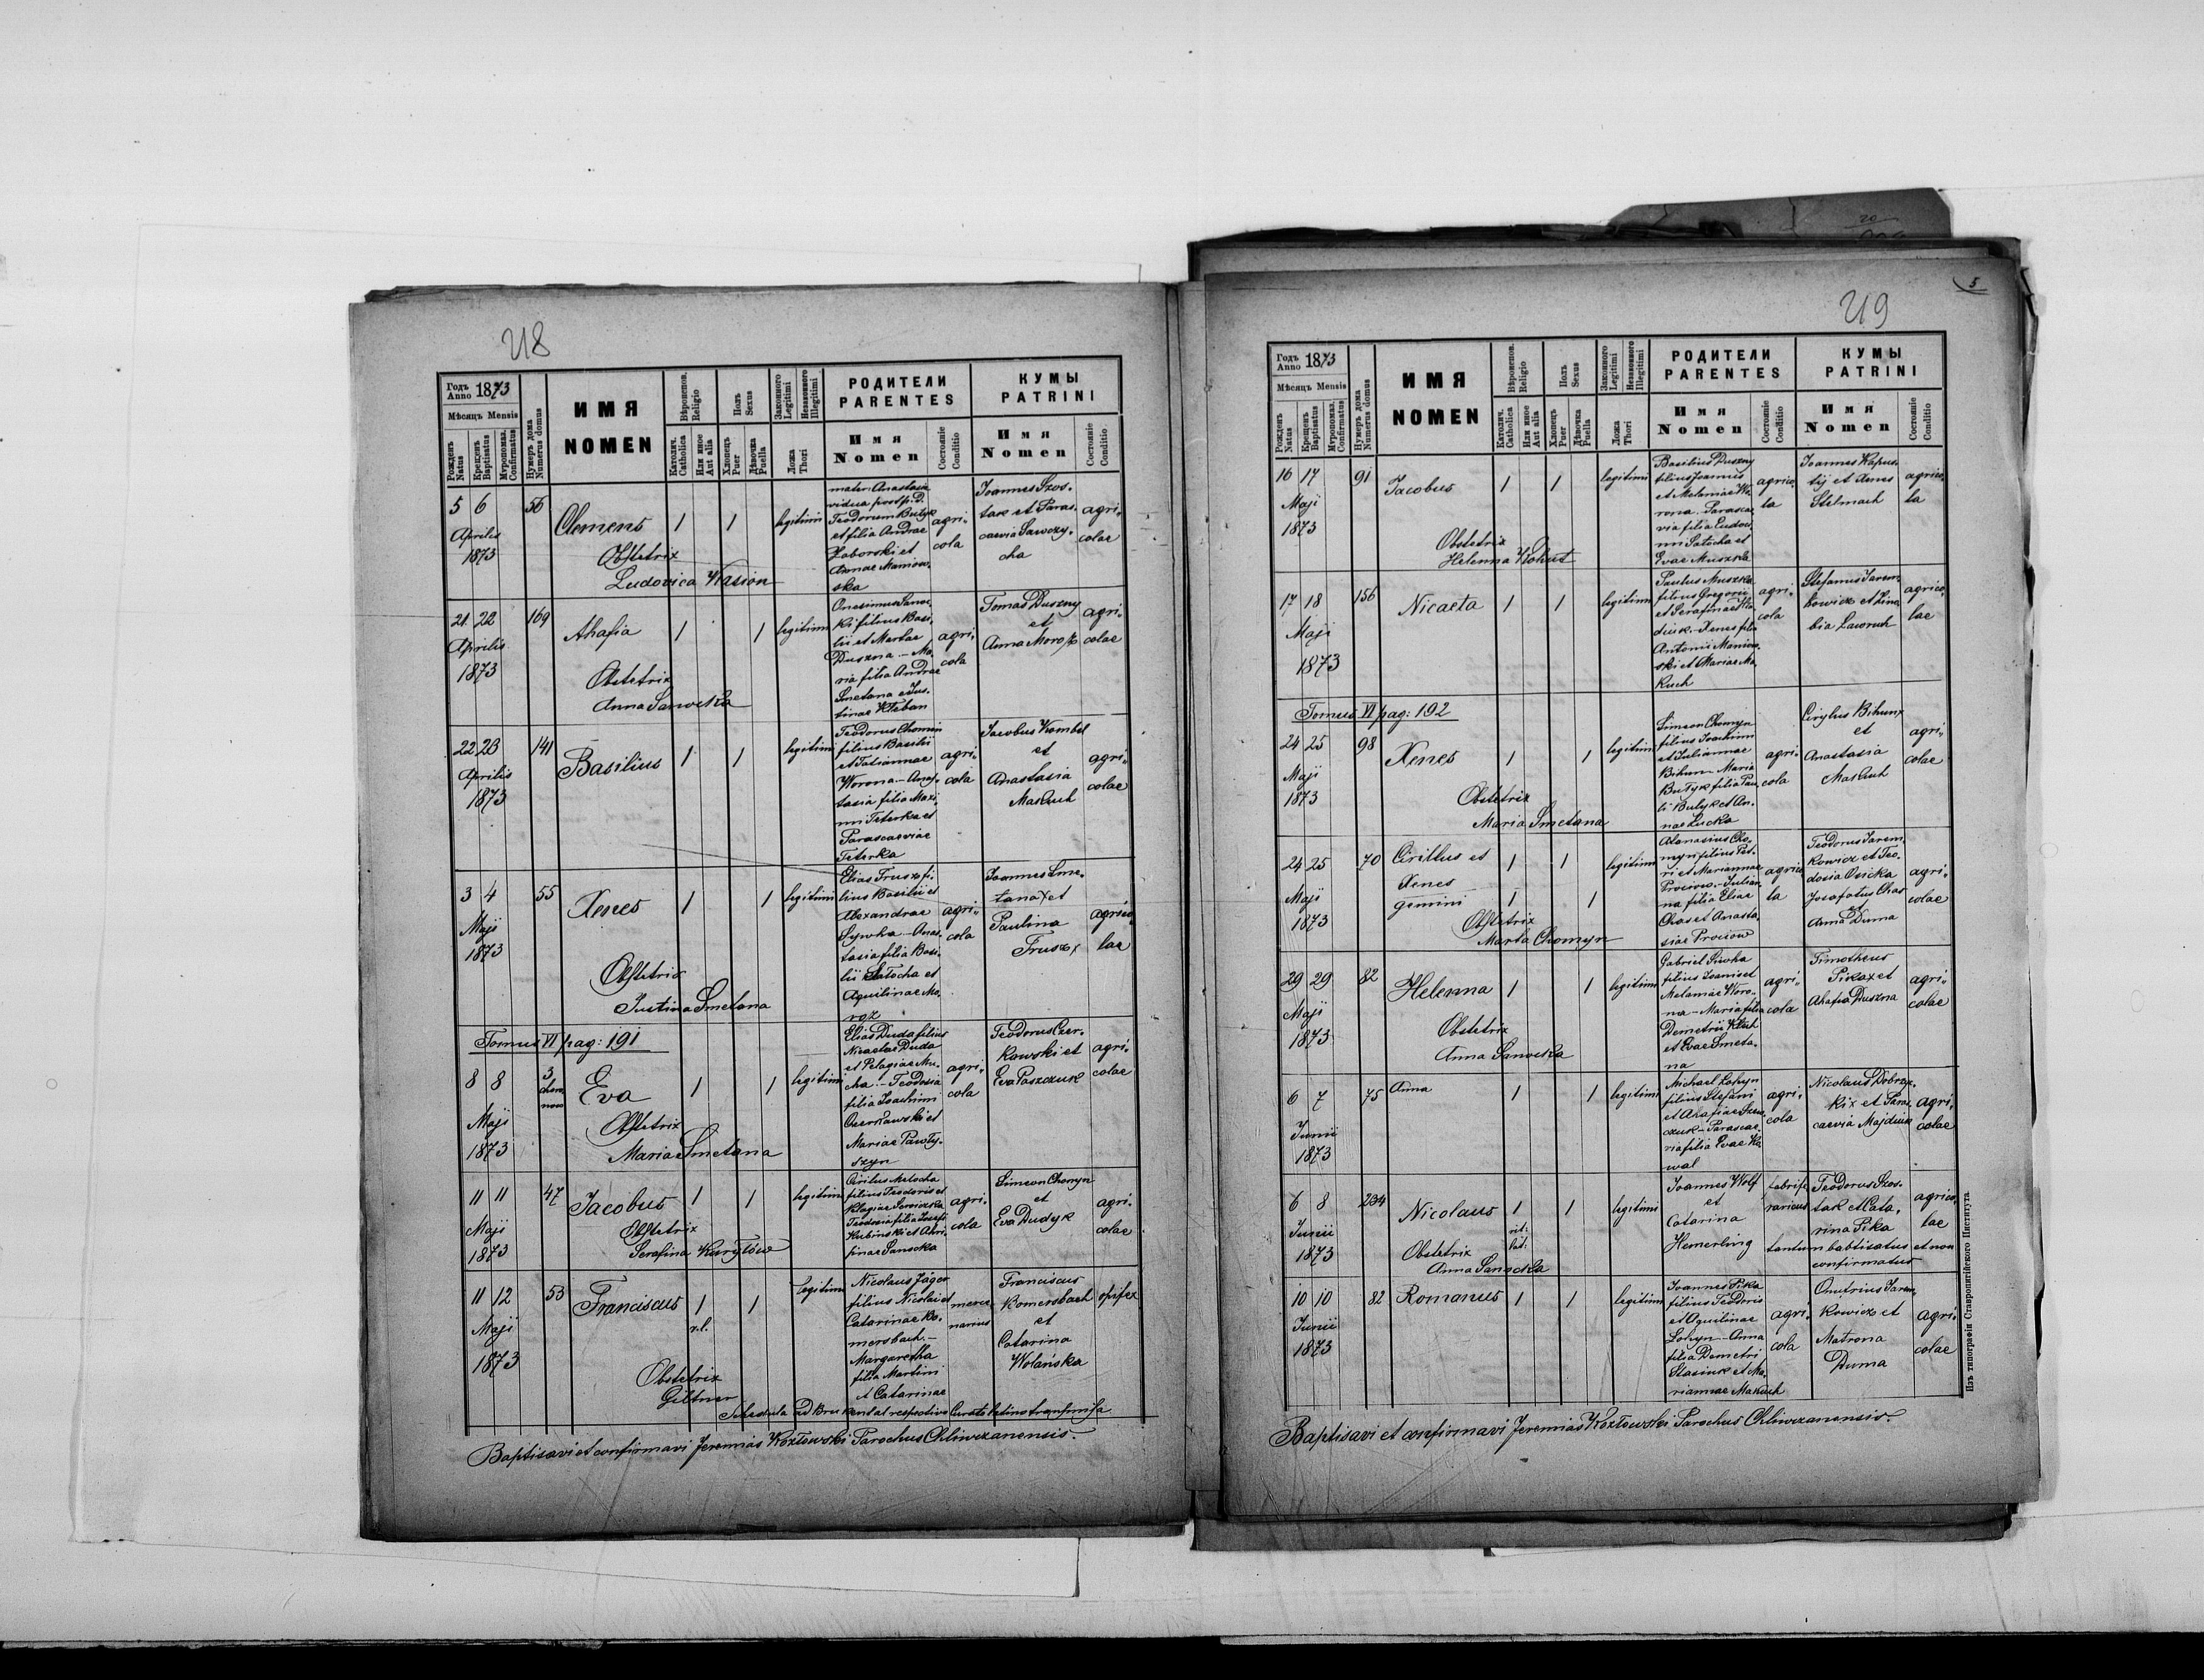 218
Годъ Anno 1873
Мѣсяцъ Mensis
Рожденъ Natus
Крещенъ Baptisatus
Мѵропомаз. Confirmatus
Нумеръ дома Numerus domus
ИМЯ
NOMEN
Вѣроиспов. Religio
Католич. Catholica
Или иное Aut alia
Полъ Sexus
Хлопецъ Puer
Дѣвочка Puella
Законного Legitimi
Незаконного Illegitimi
Ложа Thori
РОДИТЕЛИ
PARENTES
Имя
Nomen
Состояніе
Conditio
КУМЫ
PATRINI
Имя
Nomen
Состояніе
Conditio
5 6 Aprilis 1873
56
Clemens
Obstetrix
Ludovica Wasion
1 1 legitimi
mater Anastasia
vidua post p. D.
Teodorum Butyk
et filia Andrae
Zaborski et
Annae Maniow,
ska
agri,
cola
Joannes Szos,
tak et Paras,
caevia Sawczy,
cha
agri,
colae
21 22 Aprilis 1873
169
Ahafia
Obstetrix
Anna Sanocka
1 1 legitimi
Onesimus Sanoc,
ki filius Basi,
lii et Martae
Duszna – Ma,
ria filia Andrae
Smetana et Jus,
tinae Kleban
agri,
cola
Tomas Duszny
et
Anna Moroz
agri,
colae
22 23 Aprilis 1873
141
Basilius
1 1 legitimi
Teodorus Chomin
filius Basilii
et Tatiannae
Worona – Anas,
tasia filia Maxi,
mi Teterka et
Parascaeviae
Teterka
agri,
cola
Jacobus Kombel
et
Anastasia
Makuch
agri,
colae
3 4 Maji 1873
55
Xenes
Obstetrix
Justina Smetana
1 1 legitimi
Elias Trusz fi,
lius Basilii et
Alexandrae
Sywka – Anas,
tasia filia Basi,
lii Satocha et
Aquilinae Mo,
roz
agri,
cola
Joannes Sme,
tana et
Paulina
Trusz
agrico,
lae
Tomus VI pag: 191
8 8 Maji 1873
3
Eva
Obstetrix
Maria Smetana
1 1 legitimi
Elias Duda filius
Nicaetae Duda
et Pelagiae Mu,
cha – Teodosia
filia Joachimi
Czerkawski et
Mariae Pawły,
szyn
agri,
cola
Teodorus Czer,
kowski et
Eva Paszczuk
agri,
colae
11 11 Maji 1873
47
Jacobus
Obstetrix
Serafina Kuryłów
1 1 legitimi
Cirilus Melocha
filius Teodoris et
Teodosia filia Josefi
Kubinski et Ahri,
pinae Sanocka
agri,
cola
Simeon Chomyn
et
Eva Dudyk
agri,
colae
11 12 Maji 1873
53
Franciscus
Obstetrix
Giltner
1 r.l. 1 legitimi
Nicolaus Jäger
filius Nicolai et
Catarinae Ko,
mersbach –
Margaretha
filia Martini
et Catarinae
merce
narius
Franciscus
Komersbach
et
Catarina
Wolańska
opifex
Schedula ad Brukental respective Curato latino transmissa
Baptisavi et confirmavi Jeremias Kozłowski Parochus Chliwczanensis.
5
219
Годъ Anno 1873
Мѣсяцъ Mensis
Рожденъ Natus
Крещенъ Baptisatus
Мѵропомаз. Confirmatus
Нумеръ дома Numerus domus
ИМЯ
NOMEN
Вѣроиспов. Religio
Католич. Catholica
Или иное Aut alia
Полъ Sexus
Хлопецъ Puer
Дѣвочка Puella
Законного Legitimi
Незаконного Illegitimi
Ложа Thori
РОДИТЕЛИ
PARENTES
Имя
Nomen
Состояніе
Conditio
КУМЫ
PATRINI
Имя
Nomen
Состояніе
Conditio
16 17 Maji 1873
91
Jacobus
Obstetrix
Helenna Kohut
1 1 legitimi
Basilius Duszny
filius Joannis
et Melaniae Wo,
rona. Parascae,
via filia Eudoci,
mi Satocha et
Evae Muszka
agrico,
la
Joannes Kapus,
tij et Xenes
Stelmach
agrico,
la
17 18 Maji 1873
156
Nicaeta
1 1 legitimi
Paulus Muszka
filius Gregorii
et Serafinae Ka,
diuk – Xenes filia
Antonii Maniow,
ski et Mariae Ma,
kuch
agri,
cola
Stefanus Jarem,
kowicz et Zino,
bia Ławruch
agrico,
lae
Tomus VI pag: 192
24 25 Maji 1873
98
Xenes
Obstetrix
Maria Smetana
1 1 legitimi
Simeon Chomyn
filius Joachimi
et Juliannae
Bihun – Maria
Butyk filia Pau,
li Butyk et An,
nae Łucka
agri,
cola
Cirylus Bihun
et
Anastasia
Makuch
agri,
colae
24 25 Maji 1873
70
Cirillus et
Xenes
gemini
Obstetrix
Marta Chomyn
1 1 1 1 legitimi
Atanasius Cho,
myn filius Pet,
ri et Mariannae
Prociow – Julian,
na filia Eliae
Chas et Anasta,
siae Prociow
agrico
la
Teodorus Jarem,
kowicz et Teo,
dosia Osicka
Josafatus Chas
et
Anna Duma
agri,
colae
29 29 Maji 1873
82
Helenna
Obstetrix
Anna Sanocka
1 1 legitimi
Gabriel Siwka
filius Joanis et
Melaniae Woro,
na – Maria filia
Demetrii Kłak
et Evae Smeta,
na
agri,
cola
Timotheus
Pika et
Ahafia Duszna
agri,
colae
6 7 Junii 1873
75
Anna
1 1 legitimi
Michael Łohyn
filius Stefani
et Ahafiae Szew,
czuk – Parascae,
via filia Evae Ka,
wal
agri,
cola
Nicolaus Dobrzy,
ki et Paras,
caevia Majdiuk
agri,
colae
6 8 Junii 1873
234
Nicolaus
Obstetrix
Anna Sanocka
1 rit: lat: 1 legitimi
Joannes Wolf
et
Catarina
Hemerling
fabrife,
rarius
Teodorus Szos,
tak et Cata,
rina Pika
agrico,
lae
tantum babtisatus et non
confirmatus
10 10 Junii 1873
82
Romanus
1 1 legitimi
Joannes Pika
filius Teodoris
et Aquilinae
Łohyn – Anna
filia Demetri
Stasiuk et Ma,
riannae Makuch
agri,
cola
Onufrius Jarem,
kowicz et
Matrona
Duma
agri,
colae
Baptisavi et confirmavi Jeremias Kozłowski Parochus Chliwczanensis.
Изъ типографіи Ставропигійского Института